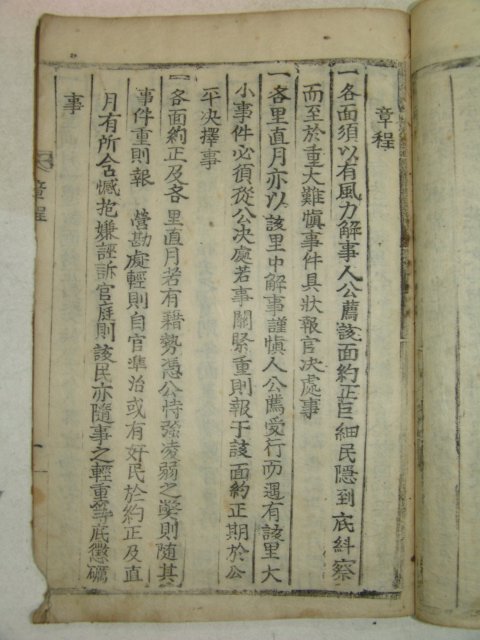 章程
一各面須以有風力解事人公薦該面約正巨細民隱到底糾察
而至於重大難慎事件具狀報官决處事
一各里直月亦以該里中解事謹慎人公薦受行而遇有該里大
小事件必須從公决處若事關緊重則報于該面約正期於公
平决擇事
一各面約正及各里直月若有藉勢憑公恃强凌弱之獘則随其
事件重則報 營勘處輕則自官準治或有奸民於約正及直
月有所含憾抱嫌誣訴官庭則該民亦隨事之輕重等底懲礪
事
章程
一